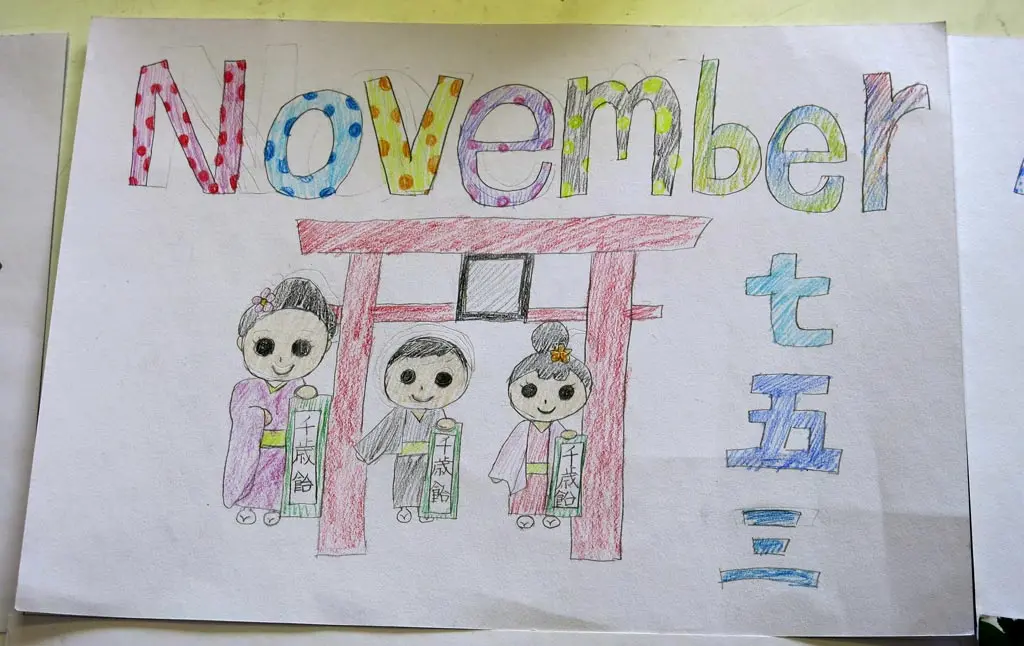 November
七五三
千歳飴
千歳飴
千歳飴